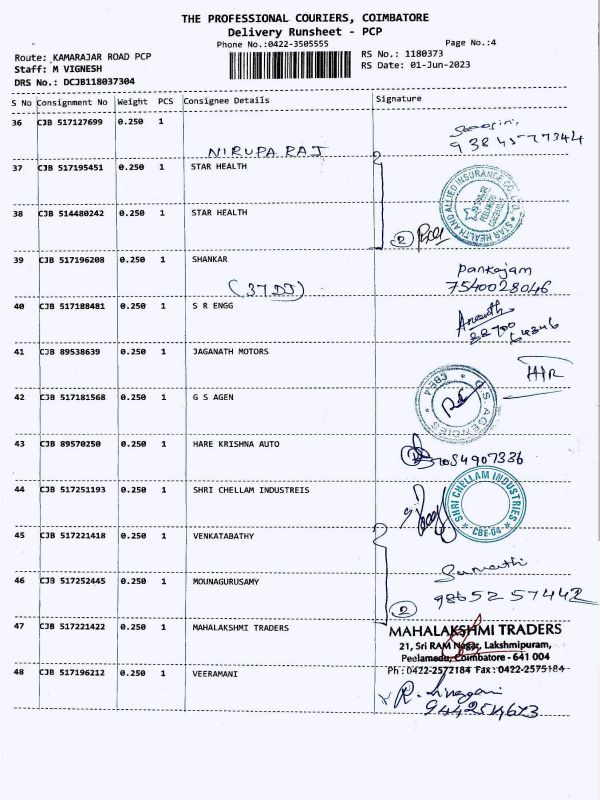 THE PROFESSIONAL COURIERS, COIMBATORE
Delivery Runsheet - PCP
Phone No.:0422-3505555 Page No.:4
Route: KAMARAJAR ROAD PCP RS No.: 1180373
Staff: M VIGNESH RS Date: 01-Jun-2023
DRS No.: DCJB118037304
S No Consignment No Weight PCS Consignee Details Signature
36 CJB 517127699 0.250 1
NIRUPA RAJ
37 CJB 517195451 0.250 1 STAR HEALTH
STAR HEALTH AND ALLIED INSURANCE CO. LTD.
38 CJB 514480242 0.250 1 STAR HEALTH
2
39 CJB 517196208 0.250 1 SHANKAR Pankajam
(37DJ) 7540028046
40 CJB 517188481 0.250 1 S R ENGG Ananth
41 CJB 89538639 0.250 1 JAGANATH MOTORS
42 CJB 517181568 0.250 1 G S AGEN
G.S. AGENCIES
43 CJB 89570250 0.250 1 HARE KRISHNA AUTO
44 CJB 517251193 0.250 1 SHRI CHELLAM INDUSTREIS SHRI CHELLAM INDUSTRIES
CBE-04
45 CJB 517221418 0.250 1 VENKATABATHY
46 CJB 517252445 0.250 1 MOUNAGURUSAMY
2 9865257442
47 CJB 517221422 0.250 1 MAHALAKSHMI TRADERS MAHALAKSHMI TRADERS
21, Sri RAM Nagar, Lakshmipuram,
Peelamedu, Coimbatore - 641 004
Ph : 0422-2572184 Fax : 0422-2575184
48 CJB 517196212 0.250 1 VEERAMANI